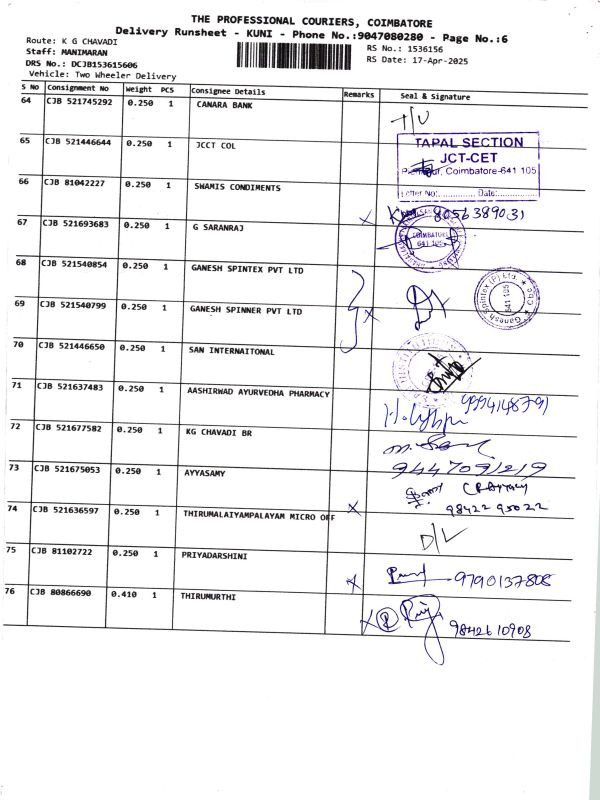 THE PROFESSIONAL COURIERS, COIMBATORE
Delivery Runsheet - KUNI - Phone No.:9047080280 - Page No.:6
Route: K G CHAVADI
Staff: MANIMARAN
DRS No.: DCJB153615606
Vehicle: Two Wheeler Delivery
RS No.: 1536156
RS Date: 17-Apr-2025
S No Consignment No Weight PCS Consignee Details Remarks Seal & Signature
64 CJB 521745292 0.250 1 CANARA BANK
65 CJB 521446644 0.250 1 JCCT COL
TAPAL SECTION
JCT-CET
Coimbatore-641 105
Letter No:............... Date:............
66 CJB 81042227 0.250 1 SWAMIS CONDIMENTS
8056389031
67 CJB 521693683 0.250 1 G SARANRAJ
COIMBATORE
641 105
68 CJB 521540854 0.250 1 GANESH SPINTEX PVT LTD
Ganesh Spintex (P) Ltd.
641 105
69 CJB 521540799 0.250 1 GANESH SPINNER PVT LTD
70 CJB 521446650 0.250 1 SAN INTERNAITONAL
71 CJB 521637483 0.250 1 AASHIRWAD AYURVEDHA PHARMACY
72 CJB 521677582 0.250 1 KG CHAVADI BR
9447091219
73 CJB 521675053 0.250 1 AYYASAMY
98422 95022
74 CJB 521636597 0.250 1 THIRUMALAIYAMPALAYAM MICRO OFF
D/L
75 CJB 81102722 0.250 1 PRIYADARSHINI
9790137808
76 CJB 80866690 0.410 1 THIRUMURTHI
9842610908